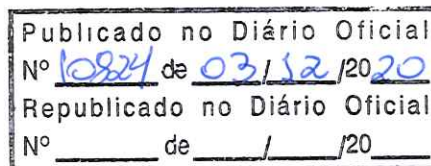 Publicado no Diário Oficial
Nº 10824 de 03/12/2020
Republicado no Diário Oficial
Nº ______ de ____/____/20____